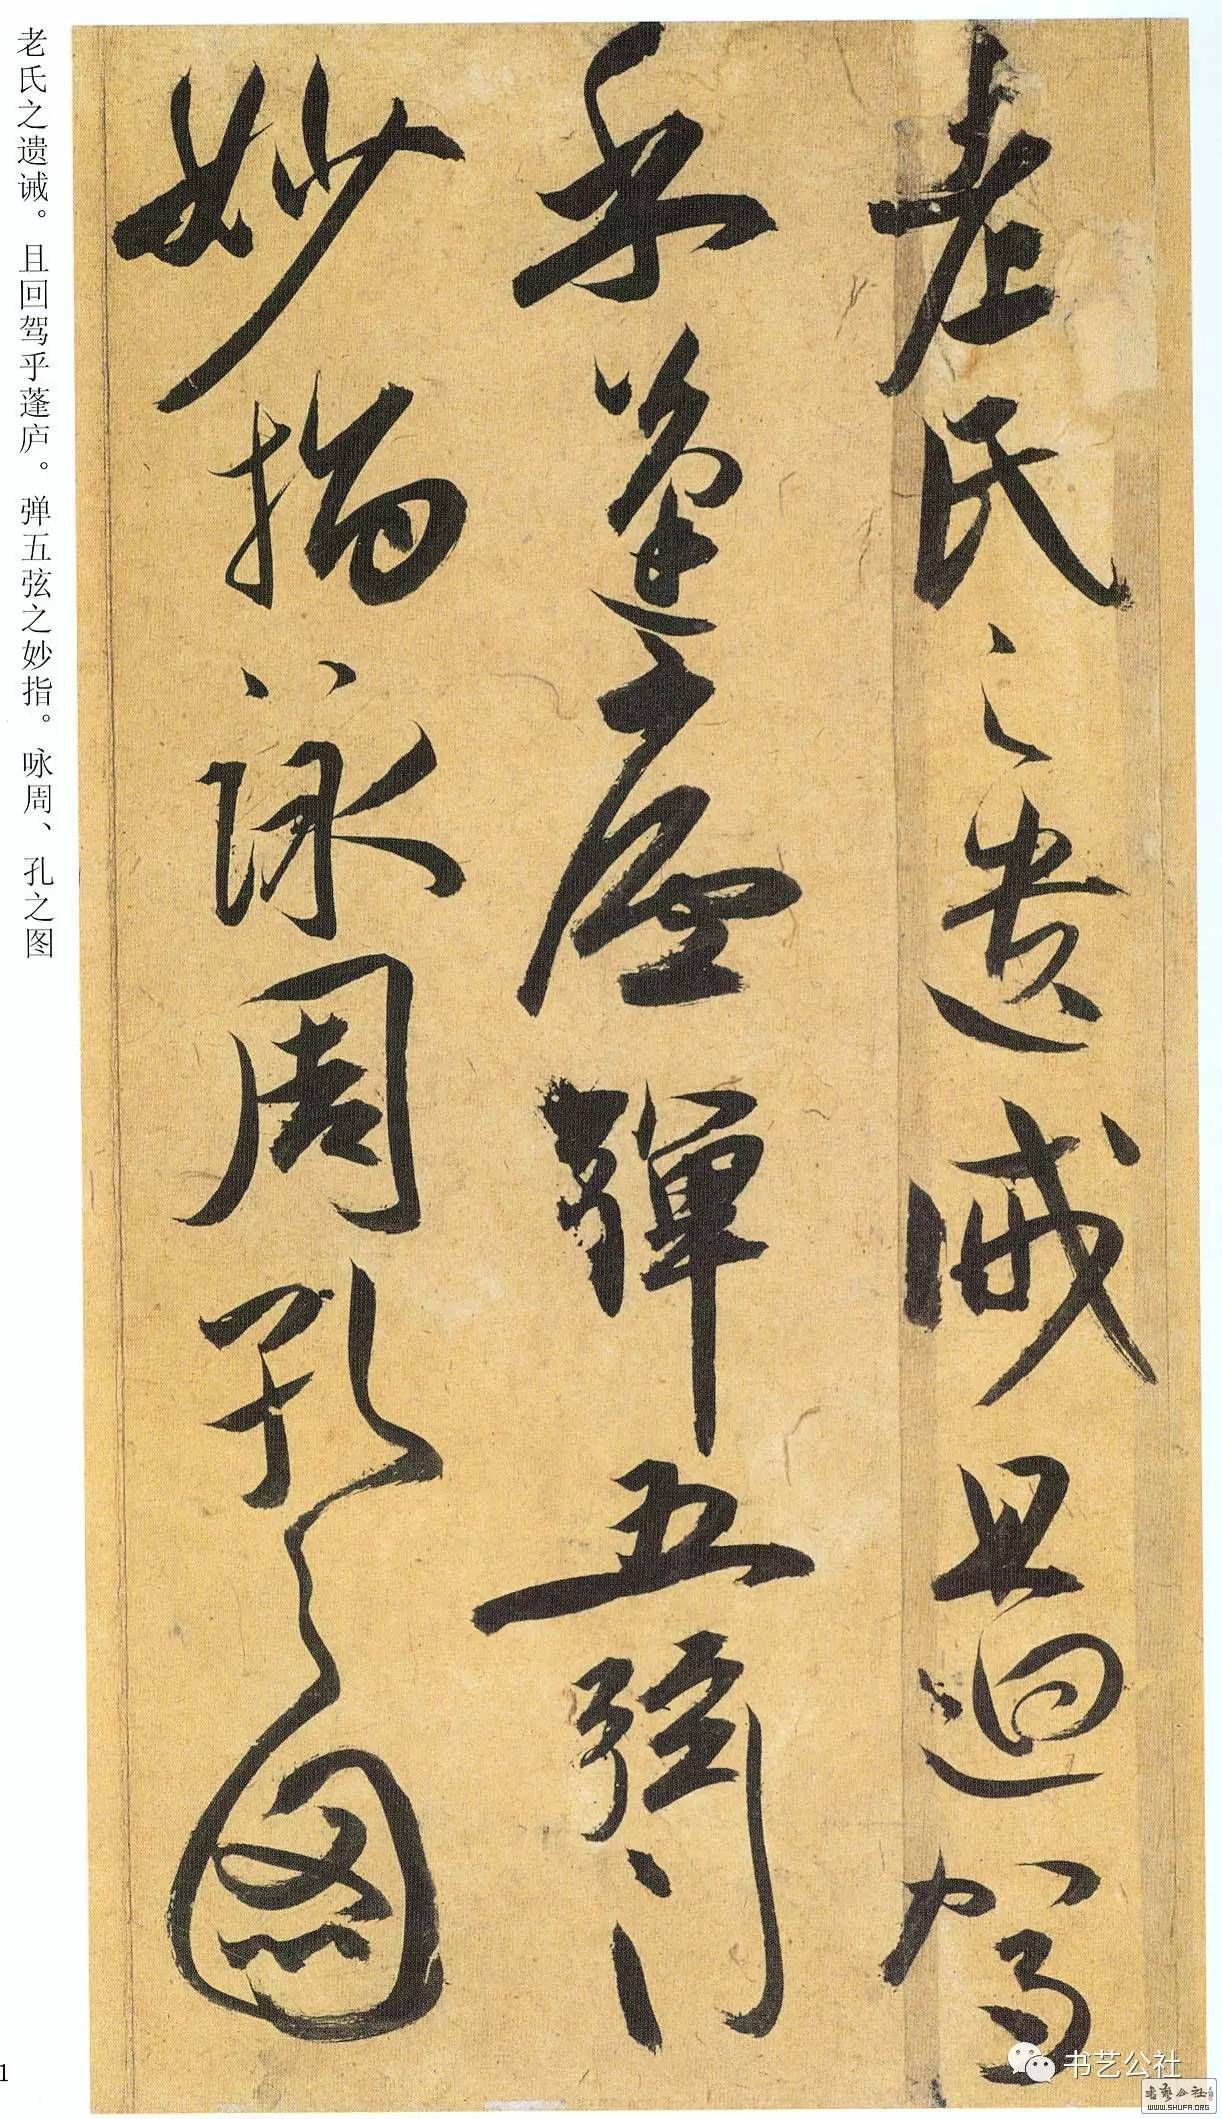 老氏之遺誡且迴駕
乎蓬廬彈五弦
妙指詠周孔之圖
老氏之遗诫。且回驾乎蓬庐。弹五弦之妙指。咏周、孔之图
1
书艺公社
書藝公社
WWW.SHUFA.ORG